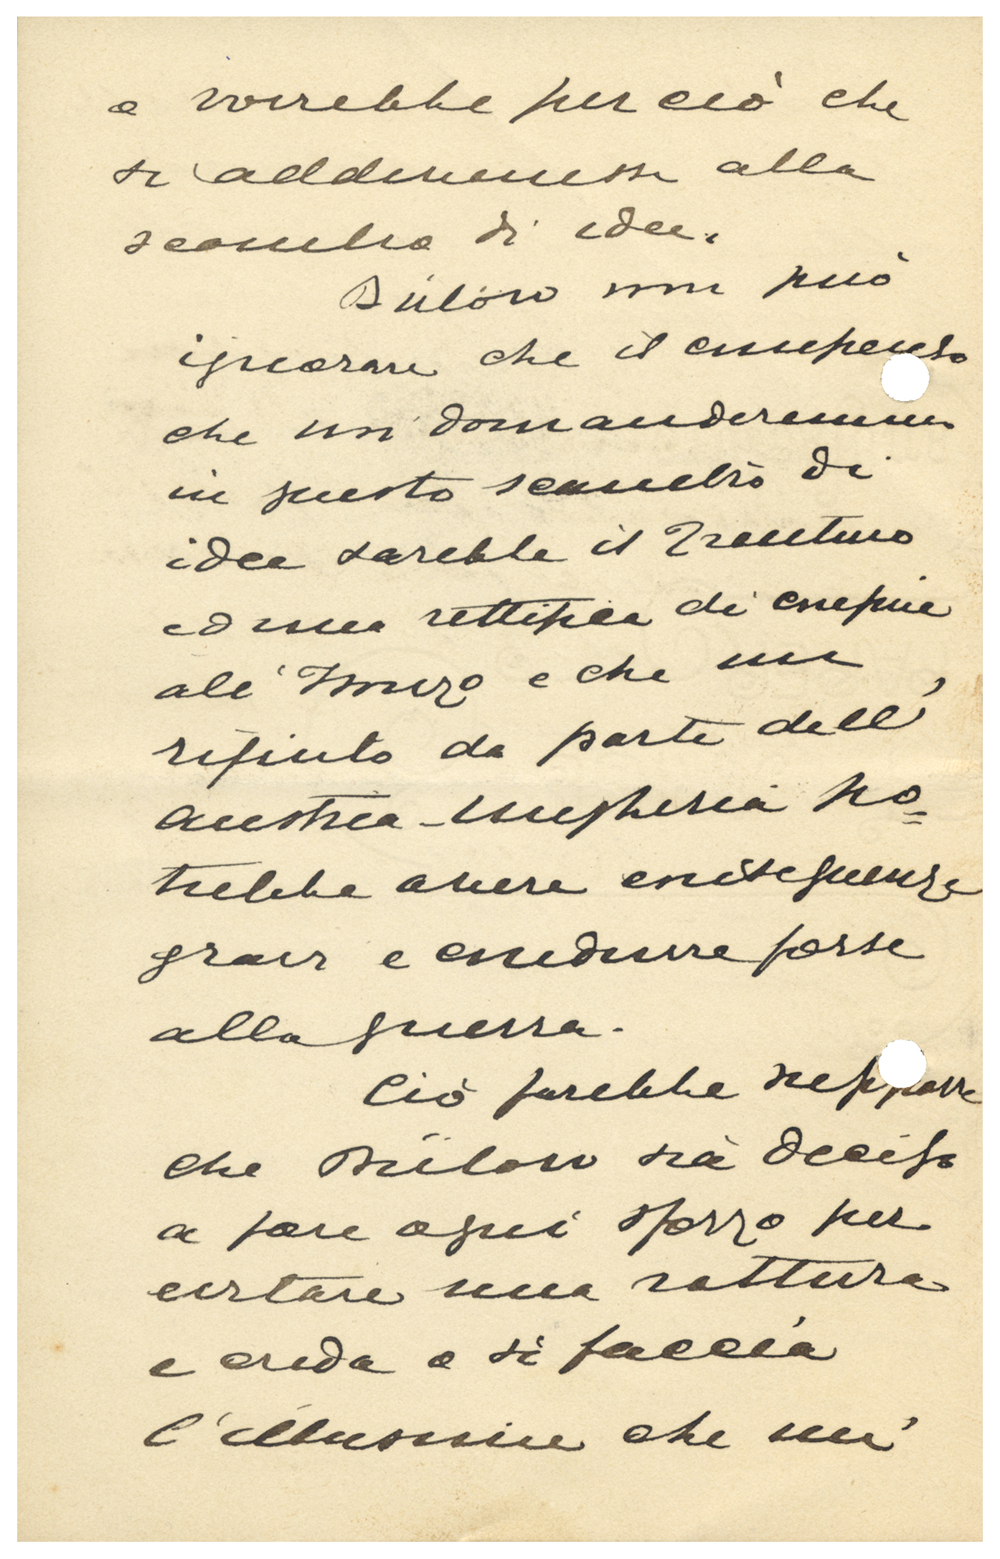 e vorrebbe perciò che
si addivenisse allo
scambio di idee.
Bülow non può
ignorare che il compenso
che noi domanderemmo
in questo scambio di
idee sarebbe il Trentino
ed una rettifica di confine
all'Isonzo e che un
rifiuto da parte dell'
Austria-Ungheria po=
trebbe avere conseguenze
gravi e condurre forse
alla guerra.
Ciò farebbe supporre
che Bülow sia deciso
a fare ogni sforzo per
evitare una rottura
e creda o si faccia
l'illusione che un'